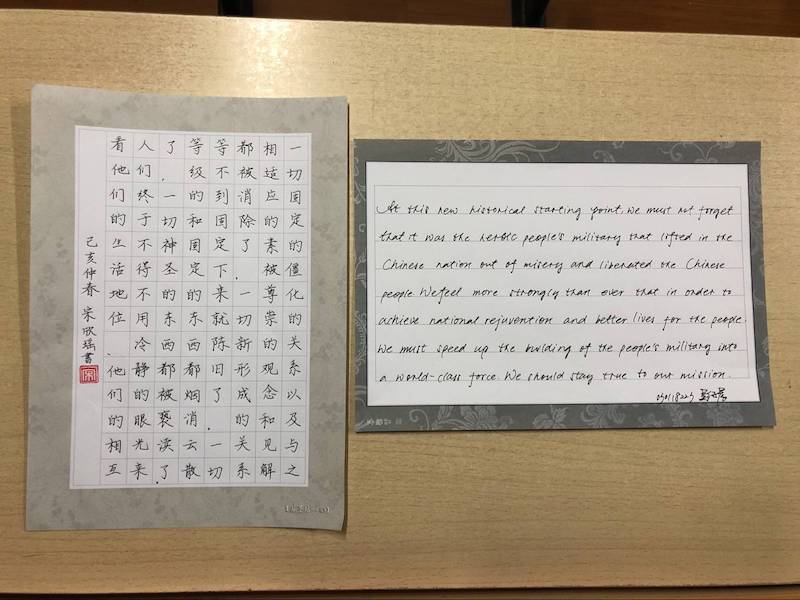 一切固定的僵化的关系以及与之
相适应的素被尊崇的观念和见解
都被消除了,一切新形成的关系
等不到固定下来就陈旧了。一切
等级的和固定的东西都烟消云散
了,一切神圣的东西都被亵渎了。
人们终于不得不用冷静的眼光来
看他们的生活地位、他们的相互
己亥仲春 宋欣瑶書
宋
At this new historical starting point, we must not forget
that it was the heroic people's military that lifted in the
Chinese nation out of misery and liberated the Chinese
people. We feel more strongly than ever that in order to
achieve national rejuvention and better lives for the people.
We must speed up the building of the people's military into
a world-class force. We should stay true to our mission.